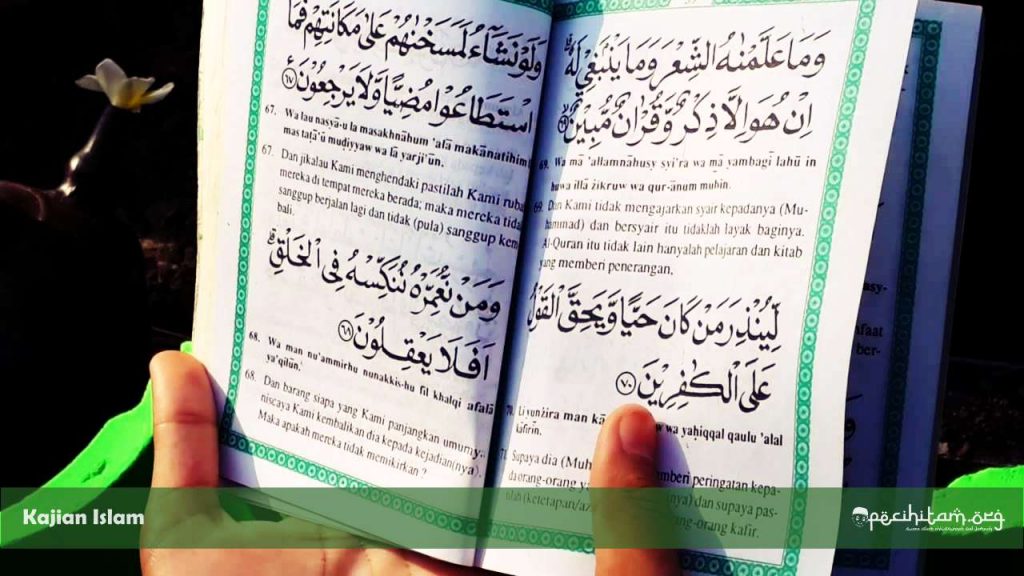 وَلَوْ نَشَآءُ لَمَسَخْنٰهُمْ عَلٰى مَكَانَتِهِمْ فَمَا
اسْتَطَاعُوْا مُضِيًّا وَّلَا يَرْجِعُوْنَ ٦٧
67. Wa lau nasyā-u la masakhnāhum 'alā makānatihim
mastaṭā'ū muḍiyyaw wa lā yarji'ūn.
67. Dan jikalau Kami menghendaki pastilah Kami rubah
mereka di tempat mereka berada; maka mereka tidak
sanggup berjalan lagi dan tidak (pula) sanggup kem
bali.
وَمَنْ نُّعَمِّرْهُ نُنَكِّسْهُ فِى الْخَلْقِۗ
اَفَلَا يَعْقِلُوْنَ ٦٨
68. Wa man nu'ammirhu nunakkis-hu fil khalqi afalā
ya'qilūn.
68. Dan barang siapa yang Kami panjangkan umurnya
niscaya Kami kembalikan dia kepada kejadian(nya).
Maka apakah mereka tidak memikirkan ?
وَمَا عَلَّمْنٰهُ الشِّعْرَ وَمَا يَنْبَغِيْ لَهٗۗ
اِنْ هُوَ اِلَّا ذِكْرٌ وَّقُرْاٰنٌ مُّبِيْنٌ ٦٩
69. Wa mā 'allamnāhusy syi'ra wa mā yambagī lahū in
huwa illā żikruw wa qur-ānum mubin.
69. Dan Kami tidak mengajarkan syair kepadanya (Mu-
hammad) dan bersyair itu tidaklah layak baginya.
Al-Quran itu tidak lain hanyalah pelajaran dan kitab
yang memberi penerangan,
لِّيُنْذِرَ مَنْ كَانَ حَيًّا وَّيَحِقَّ الْقَوْلُ
عَلَى الْكٰفِرِيْنَ ٧٠
70. Li yunżira man wa yahiqqal qaulu 'alal
kāfirīn.
Supaya dia (Muh mberi peringatan kepa-
da orang-orang nya) dan supaya pas-
(ketetapan orang-orang kafir.
Kajian Islam
pecihitam.org